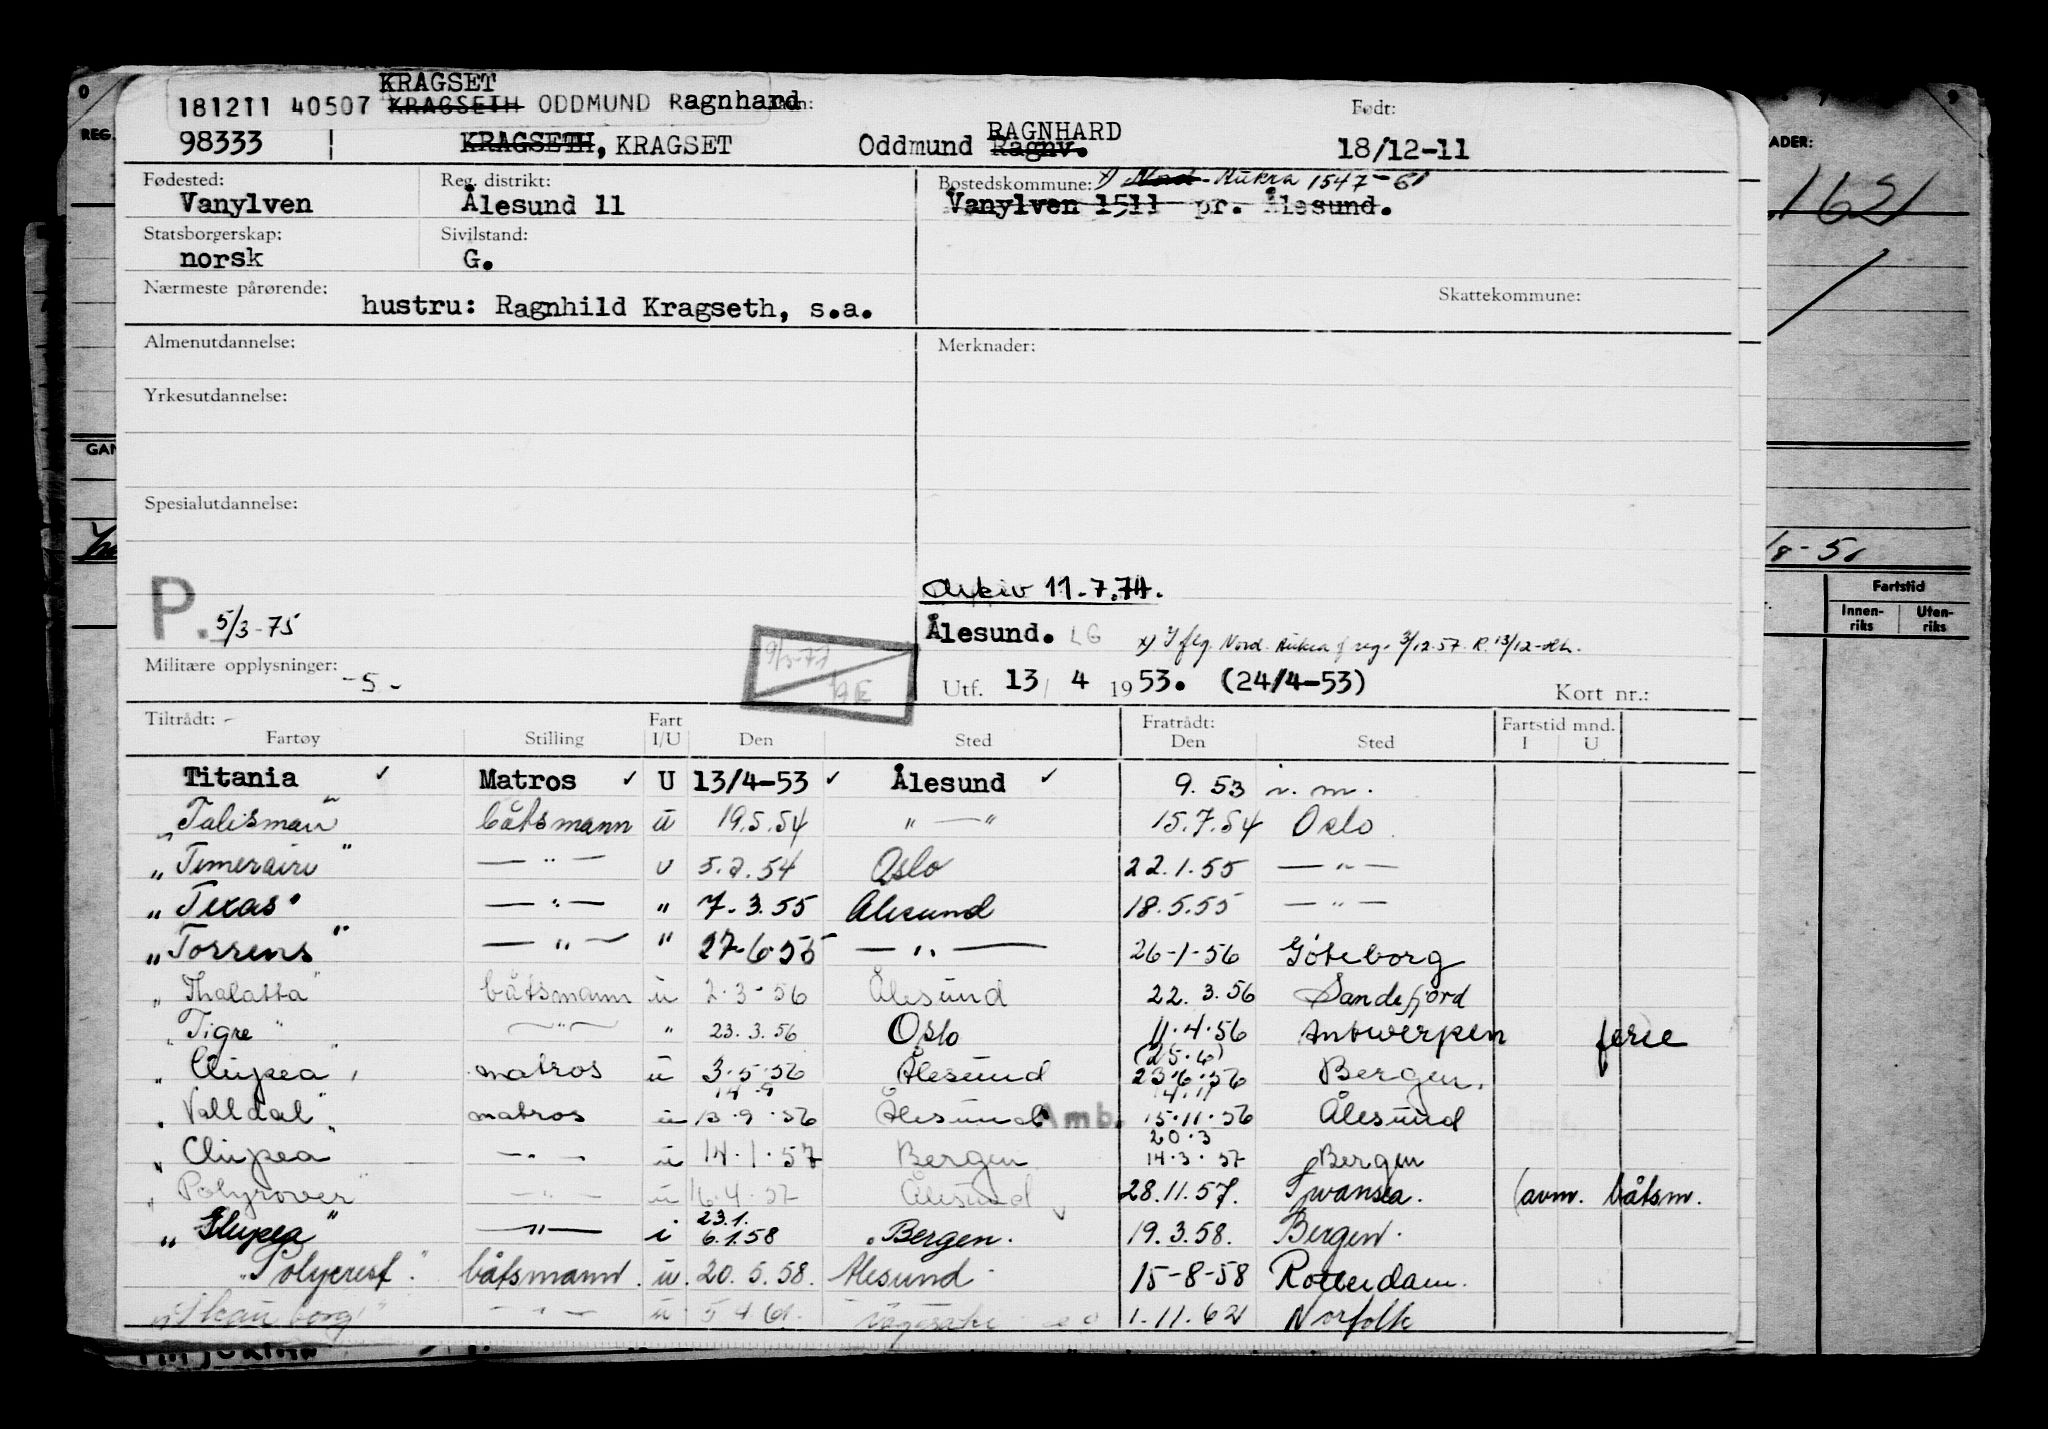 KRAGSET
181211 40507 KRAGSETH ODDMUND Ragnhard
98333 KRAGSETH, KRAGSET Oddmund Ragnv. RAGNHARD Født: 18/12-11
Fødested: Reg. distrikt: Bostedskommune: x) Nord-Aukra 1547-61
Vanylven Ålesund 11 Vanylven 1511 pr. Ålesund.
Statsborgerskap: Sivilstand:
norsk G.
Nærmeste pårørende: Skattekommune:
hustru: Ragnhild Kragseth, s.a.
Almenutdannelse: Merknader:
Yrkesutdannelse:
Spesialutdannelse:
Arkiv 11.7.74.
P. 5/3-75 Ålesund. LG x) Iflg. Nord-Aukra f.reg. 3/12-57. R. 13/12-
Militære opplysninger: -5-
Utf. 13/ 4 1953. (24/4-53) Kort nr.:
Tiltrådt: Fart Fratrådt: Fartstid mnd.
Fartøy Stilling I/U Den Sted Den Sted I U
Titania ✓ Matros ✓ U 13/4-53 ✓ Ålesund ✓ 9. 53 n. m.
"Talisman" båtsmann u 19.5.54 " — " 15.7.54 Oslo.
"Temeraire" — " — u 54 Oslo 22.1.55 — " —
"Texas" — " — " 7.3.55 Ålesund 18.5.55 — " —
"Torrens" — " — " 27-6-55 — " — 26-1-56 Göteborg
"Thalatta" båtsmann u 2-3-56 Ålesund 22.3.56 Sandefjord
"Tigre" — " — " 23.3.56 Oslo 11.4.56 Antwerpen ferie
(25.6)
"Clupea" matros u 3.5.56 Ålesund 23.6.56 Bergen.
14.9 14.11
"Valldal" matros u 13.9.56 Ålesund Amb. 15.11.56 Ålesund
20.3
"Clupea" — " — u 14.1.57 Bergen 14.3.57 Bergen
"Polyrover" — " — u 16.4.57 Ålesund 28.11.57. Swansea. (avm. båtsm.
23.1.
"Clupea" — " — i 6.1.58 Bergen. 19.3.58. Bergen.
"Polycrest". båtsmann. u. 20.5.58. Ålesund 15-8-58 Rotterdam.
— " — u 1.11.62 Norfolk
REG.
GAN
ADER:
1621
/8-51
Fartstid
Innen-riks Uten-riks